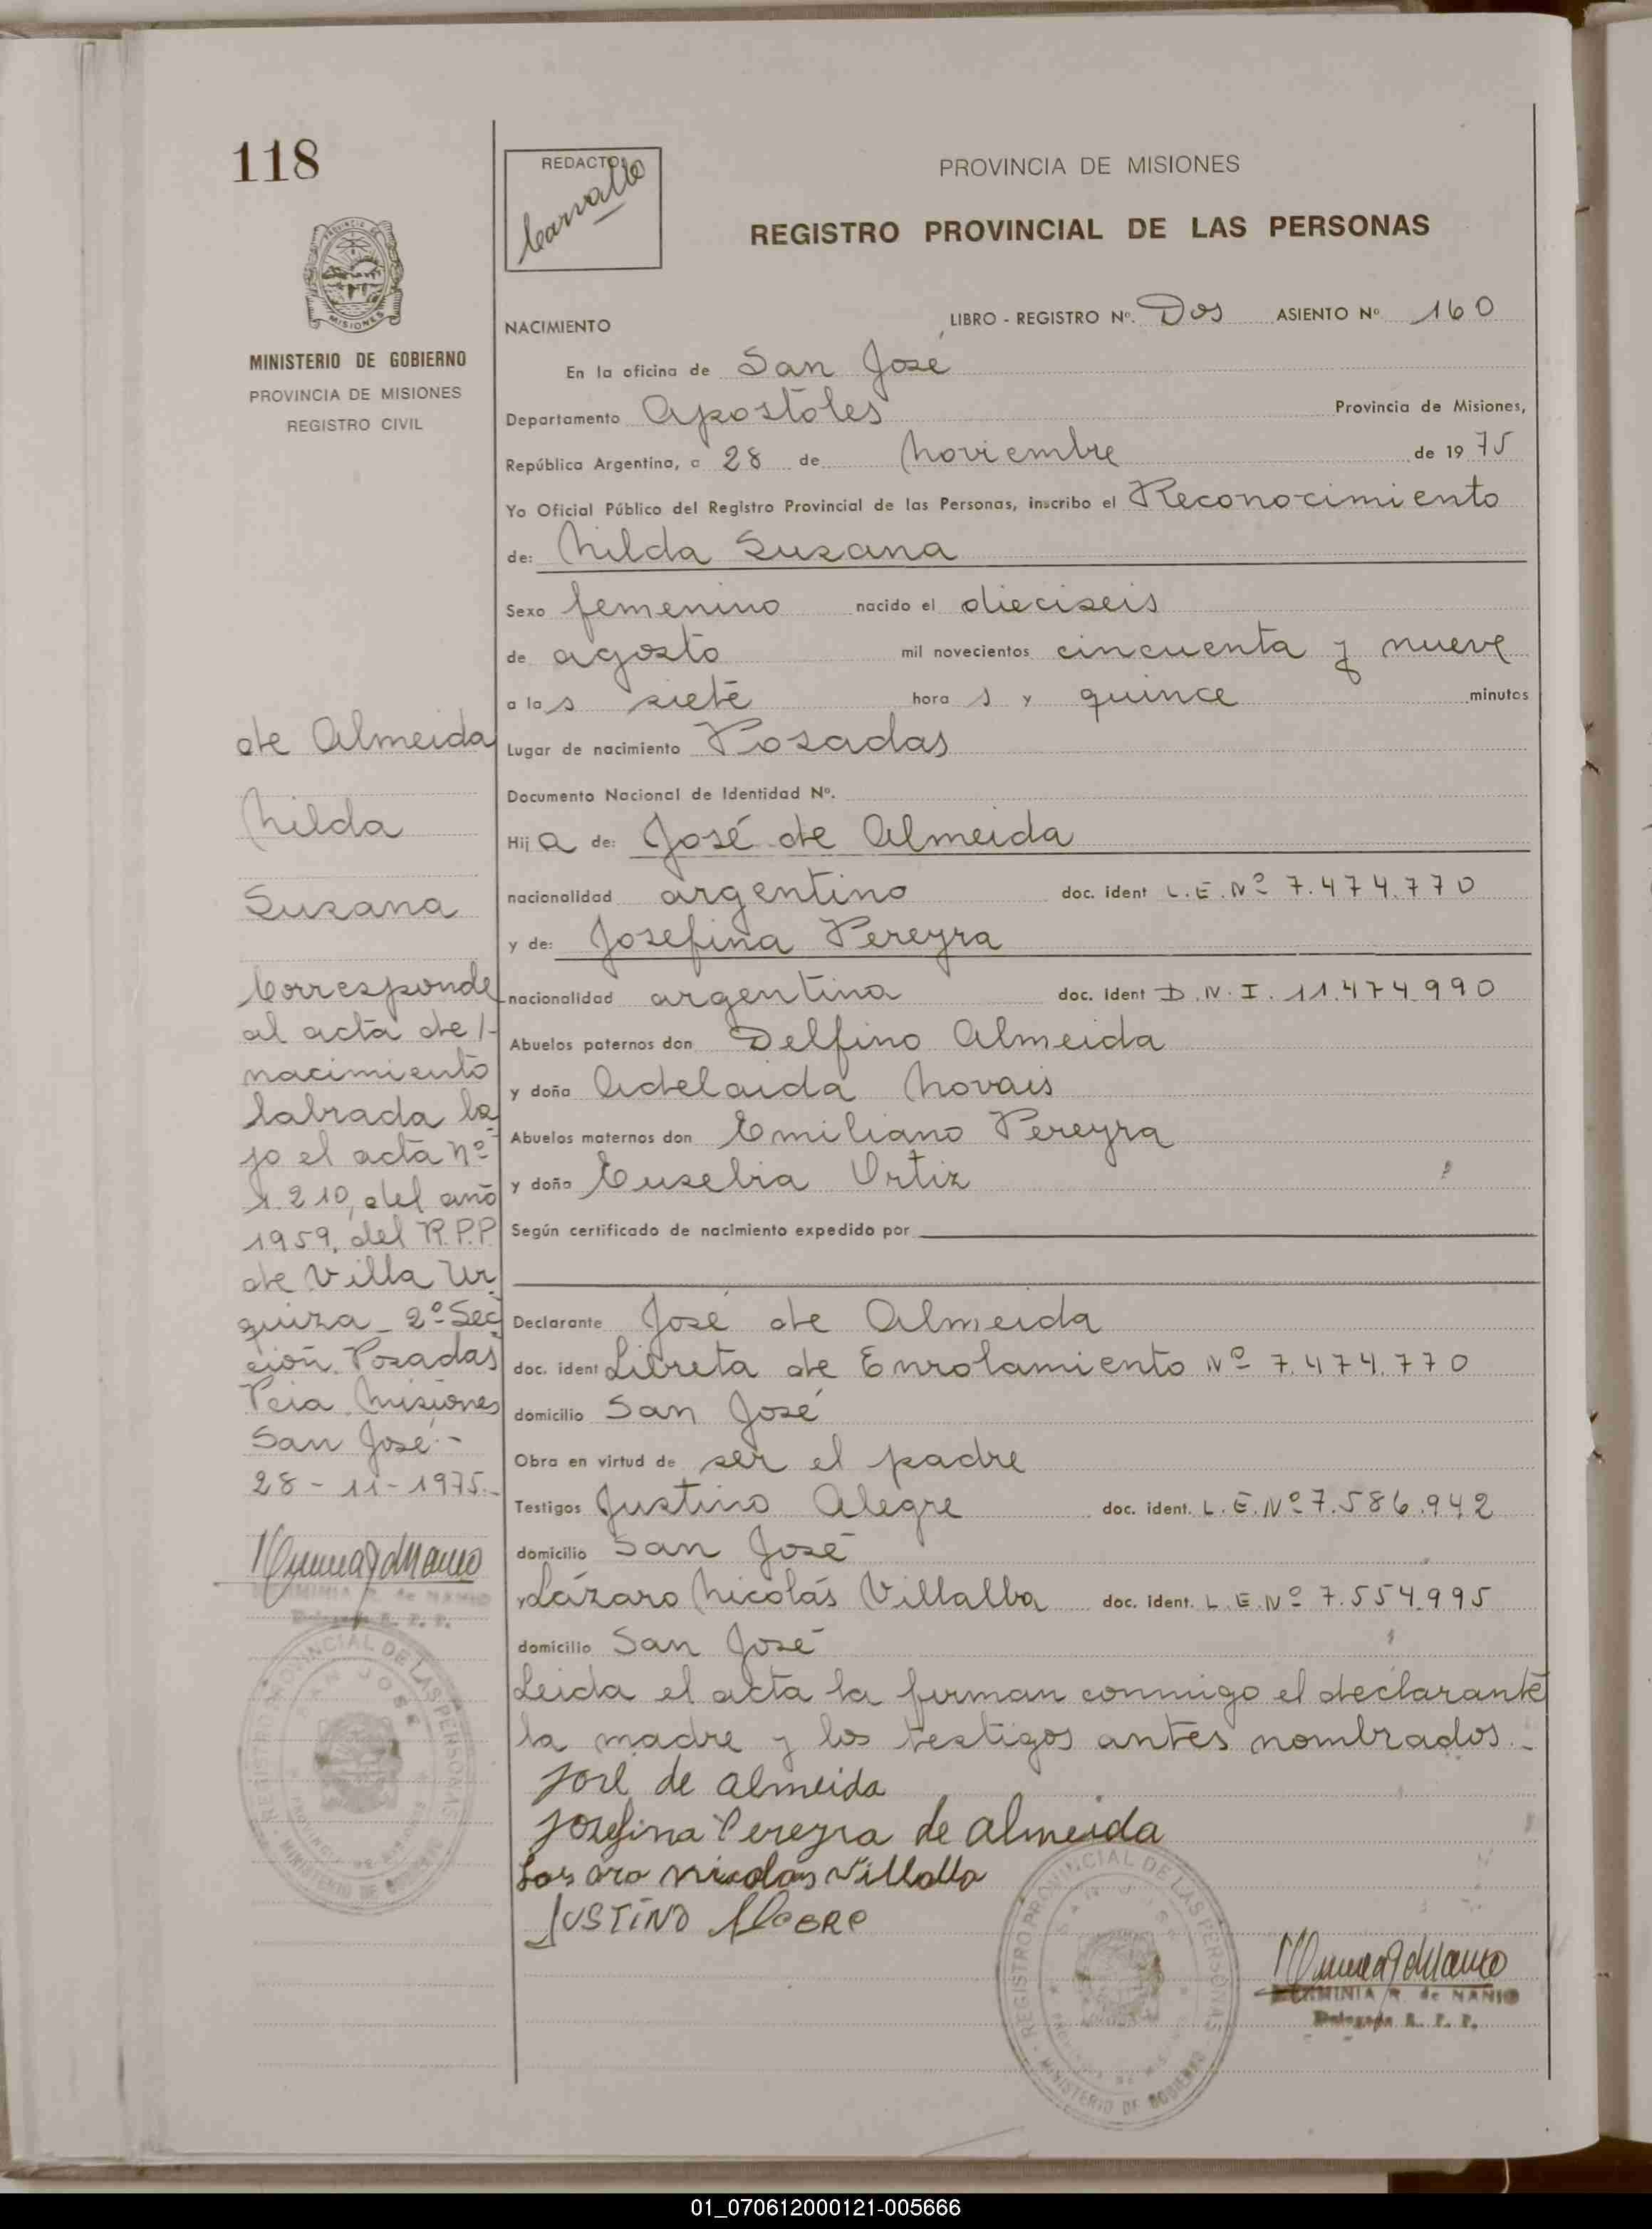 118
REDACTO:
Carvallo
PROVINCIA DE MISIONES
REGISTRO PROVINCIAL DE LAS PERSONAS
MISIONES
MINISTERIO DE GOBIERNO
PROVINCIA DE MISIONES
REGISTRO CIVIL
NACIMIENTO
LIBRO - REGISTRO Nº. Dos ASIENTO Nº 160
En la oficina de San José
Departamento Apostoles Provincia de Misiones,
República Argentina, a 28 de Noviembre de 1975
Yo Oficial Público del Registro Provincial de las Personas, inscribo el Reconocimiento
de: Nilda Susana
Sexo femenino nacido el dieciseis
de agosto mil novecientos cincuenta y nueve
a las siete horas y quince minutos
Lugar de nacimiento Posadas
Documento Nacional de Identidad Nº.
Hija de: José de Almeida
nacionalidad argentino doc. ident L.E.Nº 7.474.770
y de: Josefina Pereyra
nacionalidad argentina doc. ident D.N.I. 11.474.990
Abuelos paternos don Delfino Almeida
y doña Adelaida Novais
Abuelos maternos don Emiliano Pereyra
y doña Eusebia Ortiz
Según certificado de nacimiento expedido por
Declarante José de Almeida
doc. ident Libreta de Enrolamiento Nº 7.474.770
domicilio San José
Obra en virtud de ser el padre
Testigos Justino Alegre doc. ident. L.E.Nº 7.586.942
domicilio San José
y Lázaro Nicolás Villalba doc. ident. L.E.Nº 7.554.995
domicilio San José
Leida el acta la firman conmigo el declarante
la madre y los testigos antes nombrados.-
José de Almeida
Josefina Pereyra de Almeida
Lasaro nicolas Villalba
JUSTINO AlegRe
HERMINIA R. de NANIO
Delegada R. P. P.
REGISTRO PROVINCIAL DE LAS PERSONAS
SAN JOSE
PROVINCIA DE MISIONES
MINISTERIO DE GOBIERNO
de Almeida
Nilda
Susana
Corresponde
al acta de /-
nacimiento
labrada ba
jo el acta Nº
1.210, del año
1959, del R.P.P.
de Villa Ur
quiza - 2º Sec
ción, Posadas
Pcia. Misiones
San José.-
28-11-1975.-
HERMINIA R. de NANIO
Delegada R. P. P.
REGISTRO PROVINCIAL DE LAS PERSONAS
SAN JOSE
PROVINCIA DE MISIONES
MINISTERIO DE GOBIERNO
01_070612000121-005666